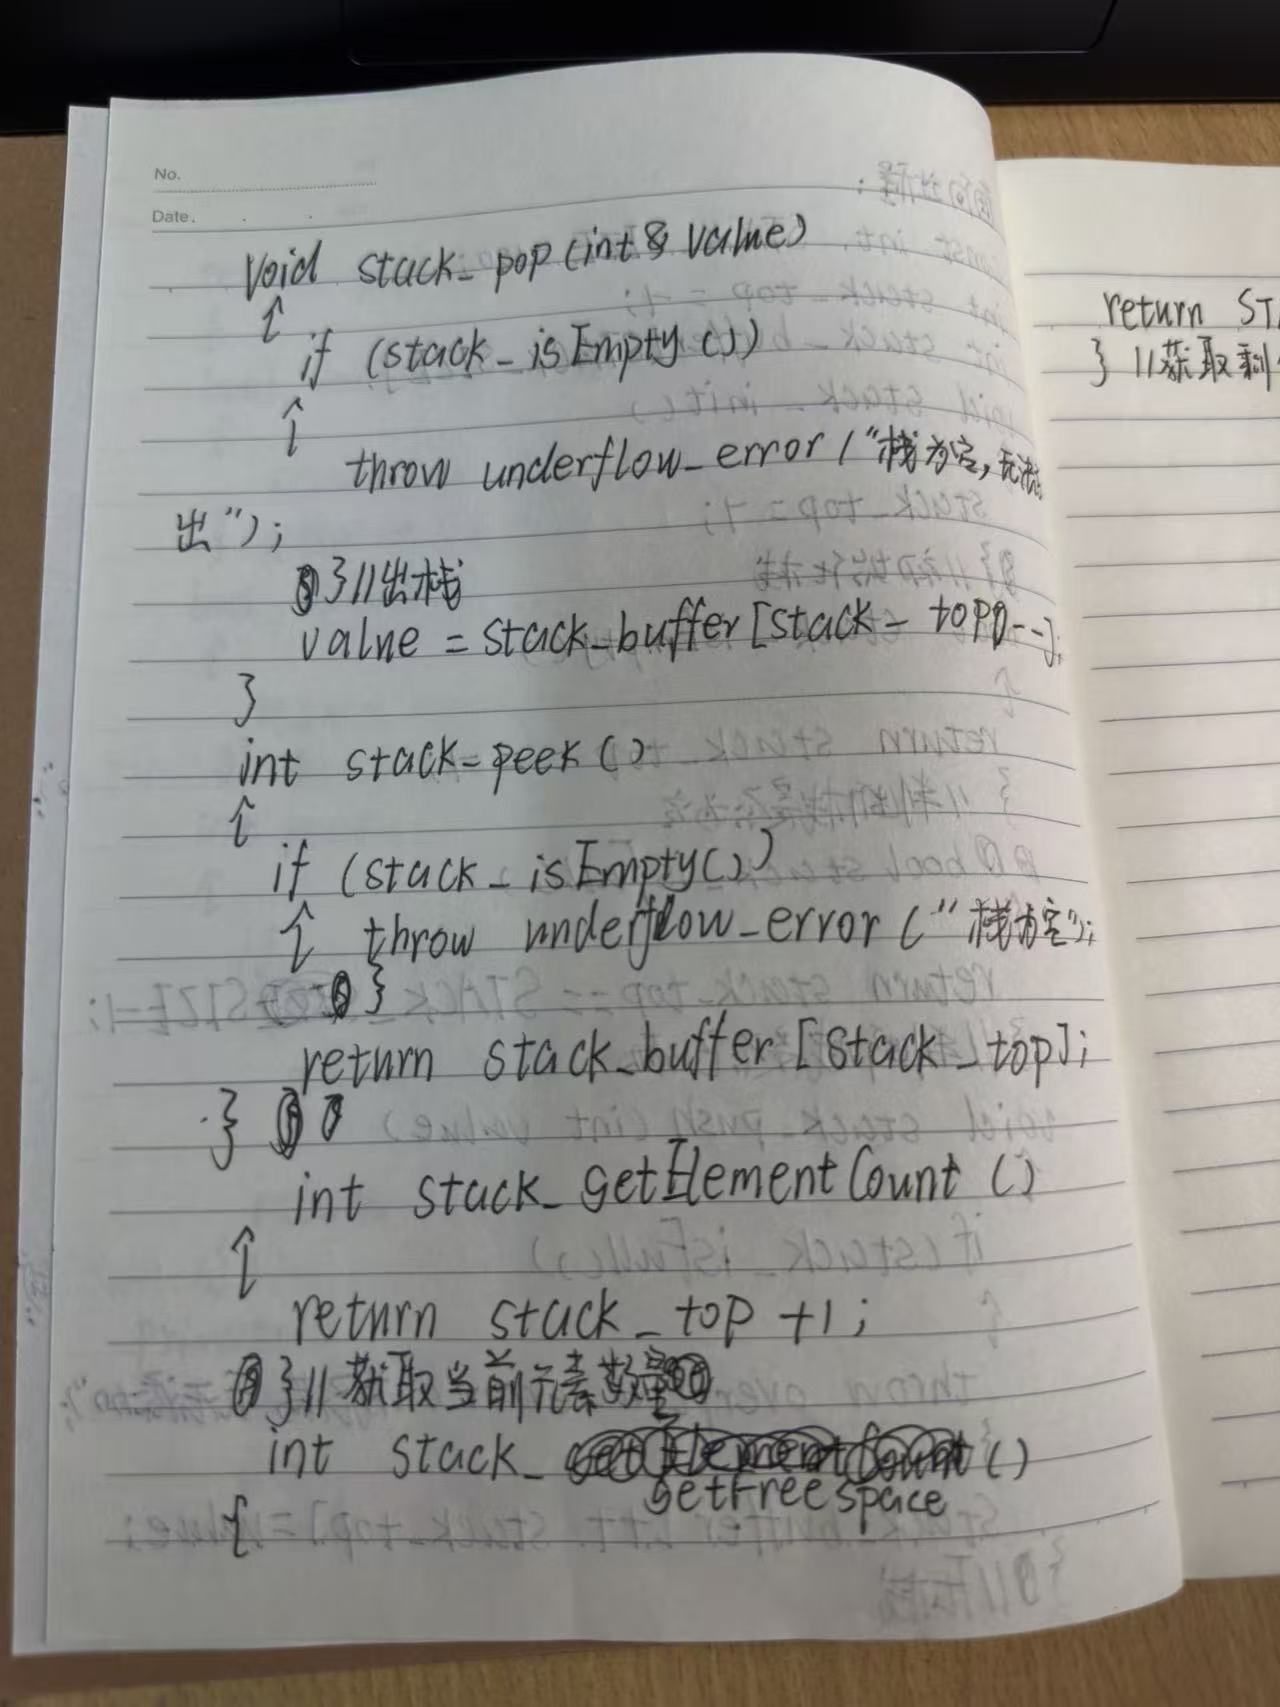 No.
Date.
void stack_pop(int & value)
{
if (stack_isEmpty())
{
throw underflow_error("栈为空,无法
出");
}//出栈
value = stack_buffer[stack_top--];
}
int stack_peek()
{
if (stack_isEmpty())
{ throw underflow_error("栈为空");
}
return stack_buffer[stack_top];
}
int stack_getElementCount()
{
return stack_top +1;
}//获取当前元素数量
int stack_getFreespace()
{
return STA
} //获取剩